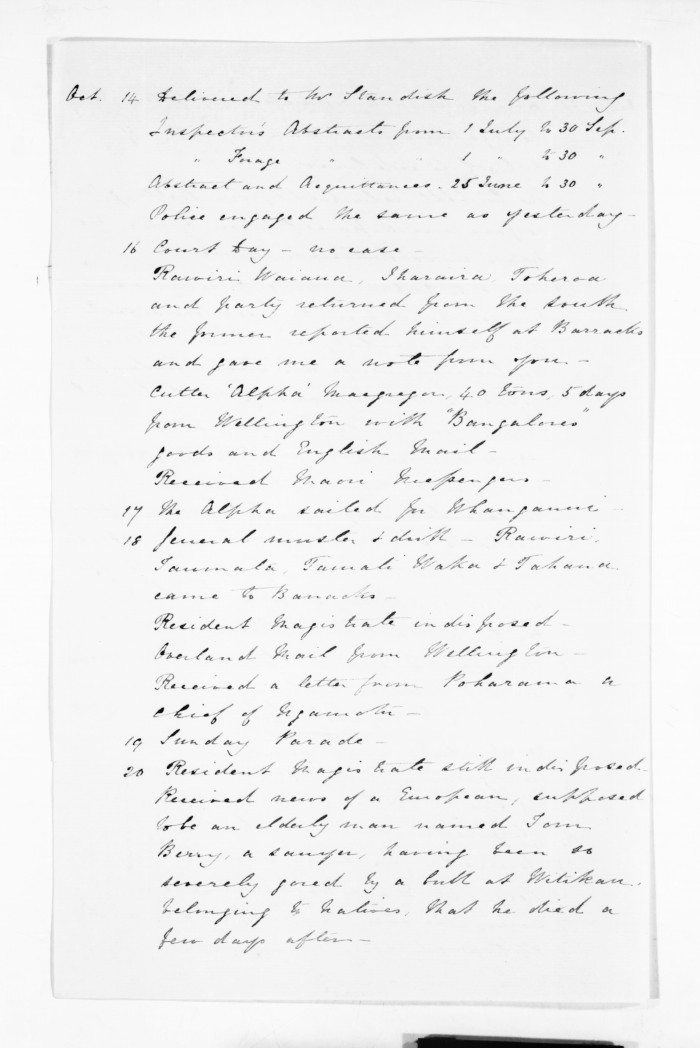 Oct. 14 Delivered to Mr Standish the following
Inspector's Abstracts from 1 July to 30 Sep.
" Forage " " 1 " to 30 "
Abstract and Acquittances. 25 June to 30 "
Police engaged the same as yesterday -
16 Court Day - no case -
Rawiri Waiaua, Iharaira, Toheroa
and party returned from the south
the former reported himself at Barracks
and gave me a note from you. -
Cutter 'Alpha' Macgregor, 40 tons, 5 days
from Wellington with "Bangalores"
goods and English Mail -
Received Maori Messengers -
17 The Alpha sailed for Whanganui -
18 General muster & drill - Rawiri,
Taumata, Tamati Waka & Tahana
came to Barracks -
Resident Magistrate indisposed -
Overland Mail from Wellington -
Received a letter from Poharama a
chief of Ngamotu -
19 Sunday Parade -
20 Resident Magistrate still indisposed.
Received news of a European, supposed
to be an elderly man named Tom
Berry, a sawyer, having been so
severely gored by a bull at Witikau,
belonging to Natives, that he died a
few days after -